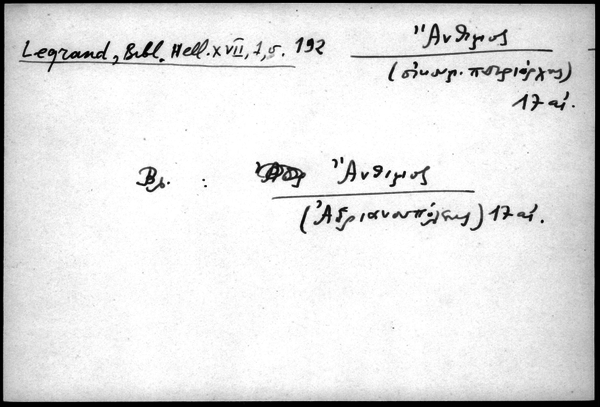 Legrand, Bibl. Hell. XVII, 1, σ. 192
Ἄνθιμος
(οἰκουμ. πατριάρχης)
17 αἰ.
Βλ. : Ἄνθιμος
(Ἀδριανουπόλεως) 17 αἰ.